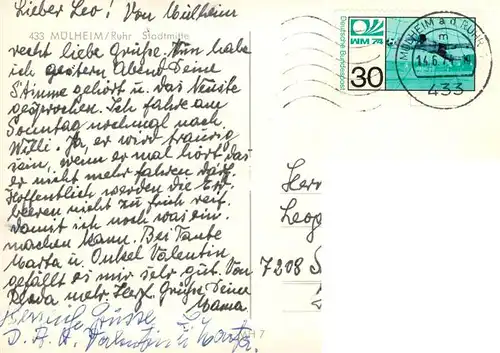 Lieber Leo! Von Mülheim
433 MÜLHEIM/Ruhr Stadtmitte
recht liebe Grüße. Nun habe
ich gestern Abend Deine
Stimme gehört u. das Neuste
gesprochen. Ich fahre am
Sonntag nochmal nach
Willi. Ja, er wird traurig
sein, wenn er mal hört das
er nicht mehr fahren darf.
Hoffentlich werden die Erd-
beeren nicht zu früh reif.
damit ich noch was ein-
machen kann. Bei Tante
Marta u. Onkel Valentin
gefällt es mir sehr gut. Von
mehr. Herzl. Grüße Deine
Mama.
Herzliche Grüsse
Valentin u. Marta.
Deutsche Bundespost
WM 74
30
MÜLHEIM a.d. RUHR 1
m
14.6.74
433
Herr
Leop
7208 S